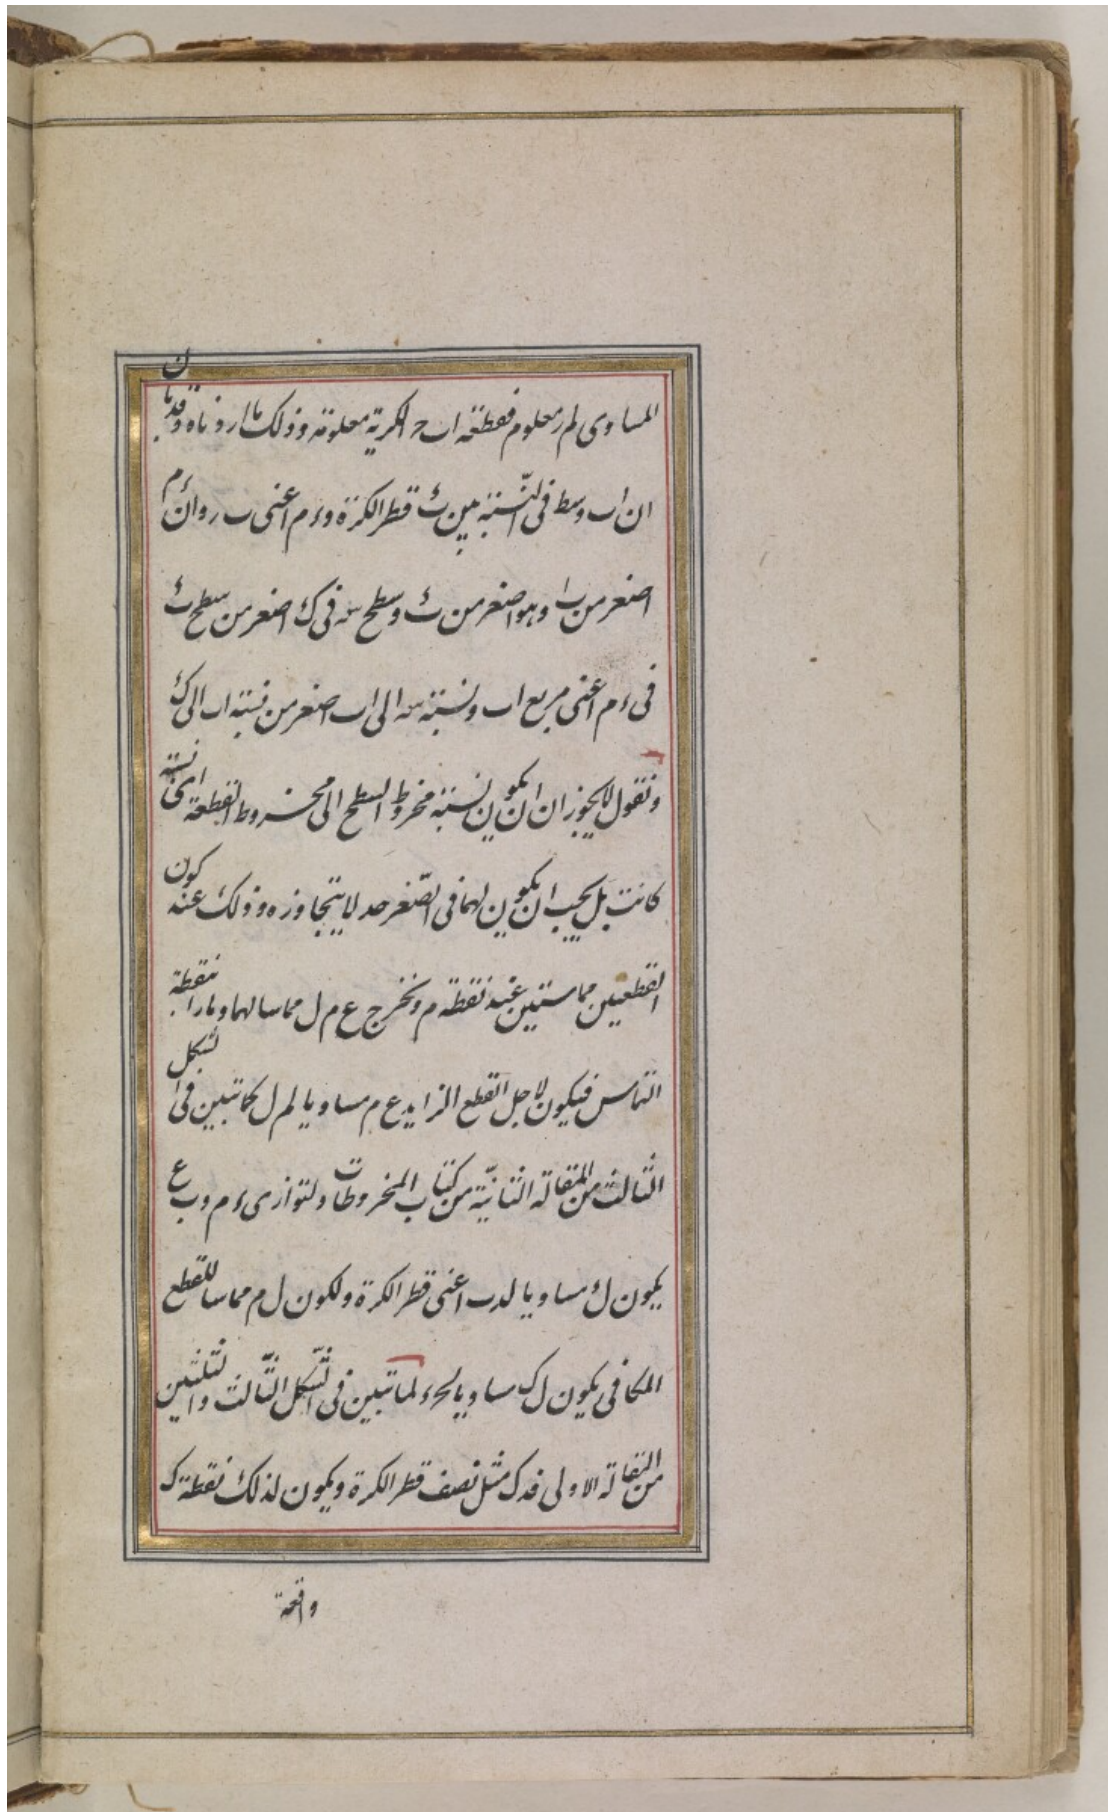 المساوى لم ر معلوم فقطعة ا ب ح الكرية معلومة وذلك ما اردناه وقد بان
ان ا ب وسط فى النسبة بين ك قطر الكرة و ء م اعنى ب ر وان ء م
اصغر من ب ا وهو اصغر من ك وسطح سه فى ك اصغر من سطح ك
فى ء م اعنى مربع ا ب ونسبة سه الى ا ب اصغر من نسبة ا ب الى ك
ونقول لا يجوز ان يكون نسبة مخروط السطح الى مخروط القطعة اى نسبة
كانت بل يجب ان يكون لهما فى الصغر حد لا يتجاوزه وذلك عند كون
القطعين مماستين عند نقطة م ونخرج ع م ل مماسا لهما ومارا بنقطة
التماس فيكون لاجل القطع الزايد ع م مساويا لم ل كما تبين فى الشكل
الثالث من المقالة الثانية من كتاب المخروطات ولتوازى ء م وب ع
يكون ل ء مساويا لد ب اعنى قطر الكرة ولكون ل م مماسا للقطع
المكافى يكون ل ك مساويا لح ء لما تبين فى الشكل الثالث والثلثين
من المقالة الاولى فد ك مثل نصف قطر الكرة ويكون لذلك نقطة ك
واقعة